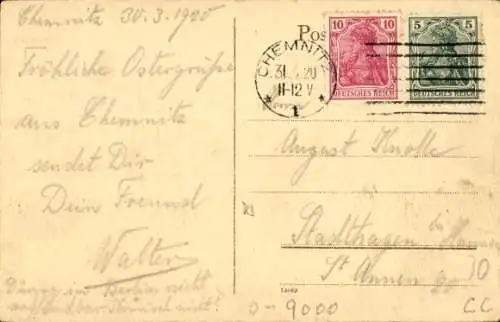 Chemnitz 30.3.1920
Fröhliche Ostergrüße
aus Chemnitz
sendet Dir
Dein Freund
Walter
in Berlin nicht
nicht!
Pos
CHEMNITZ
31. 20
11-12 V
* 1 *
10 10
DEUTSCHES REICH
5 5
DEUTSCHES REICH
August Knolle
Stadthagen bei
St Annen
30
D-9000
CC